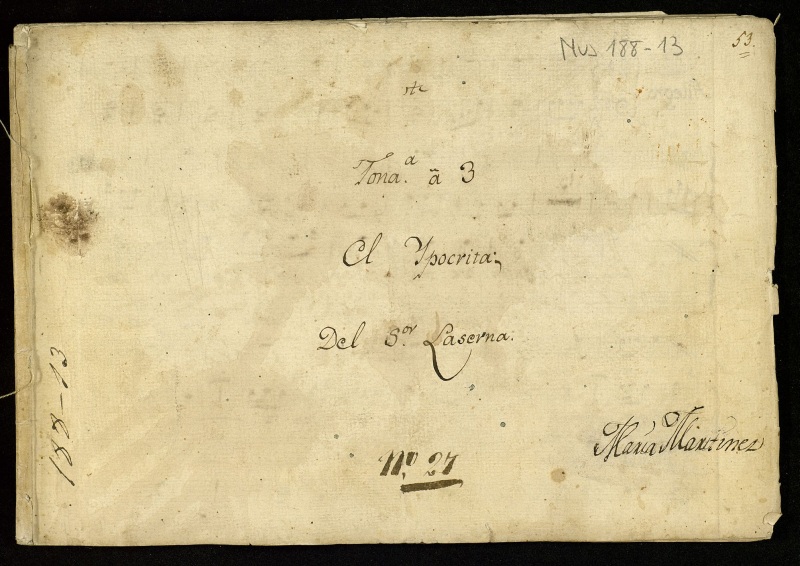 Mus 188-13
53.
Ton.ª â 3
El Ypocrita.
Del S.or Laserna.
María Martinez
Nº 27
188-13